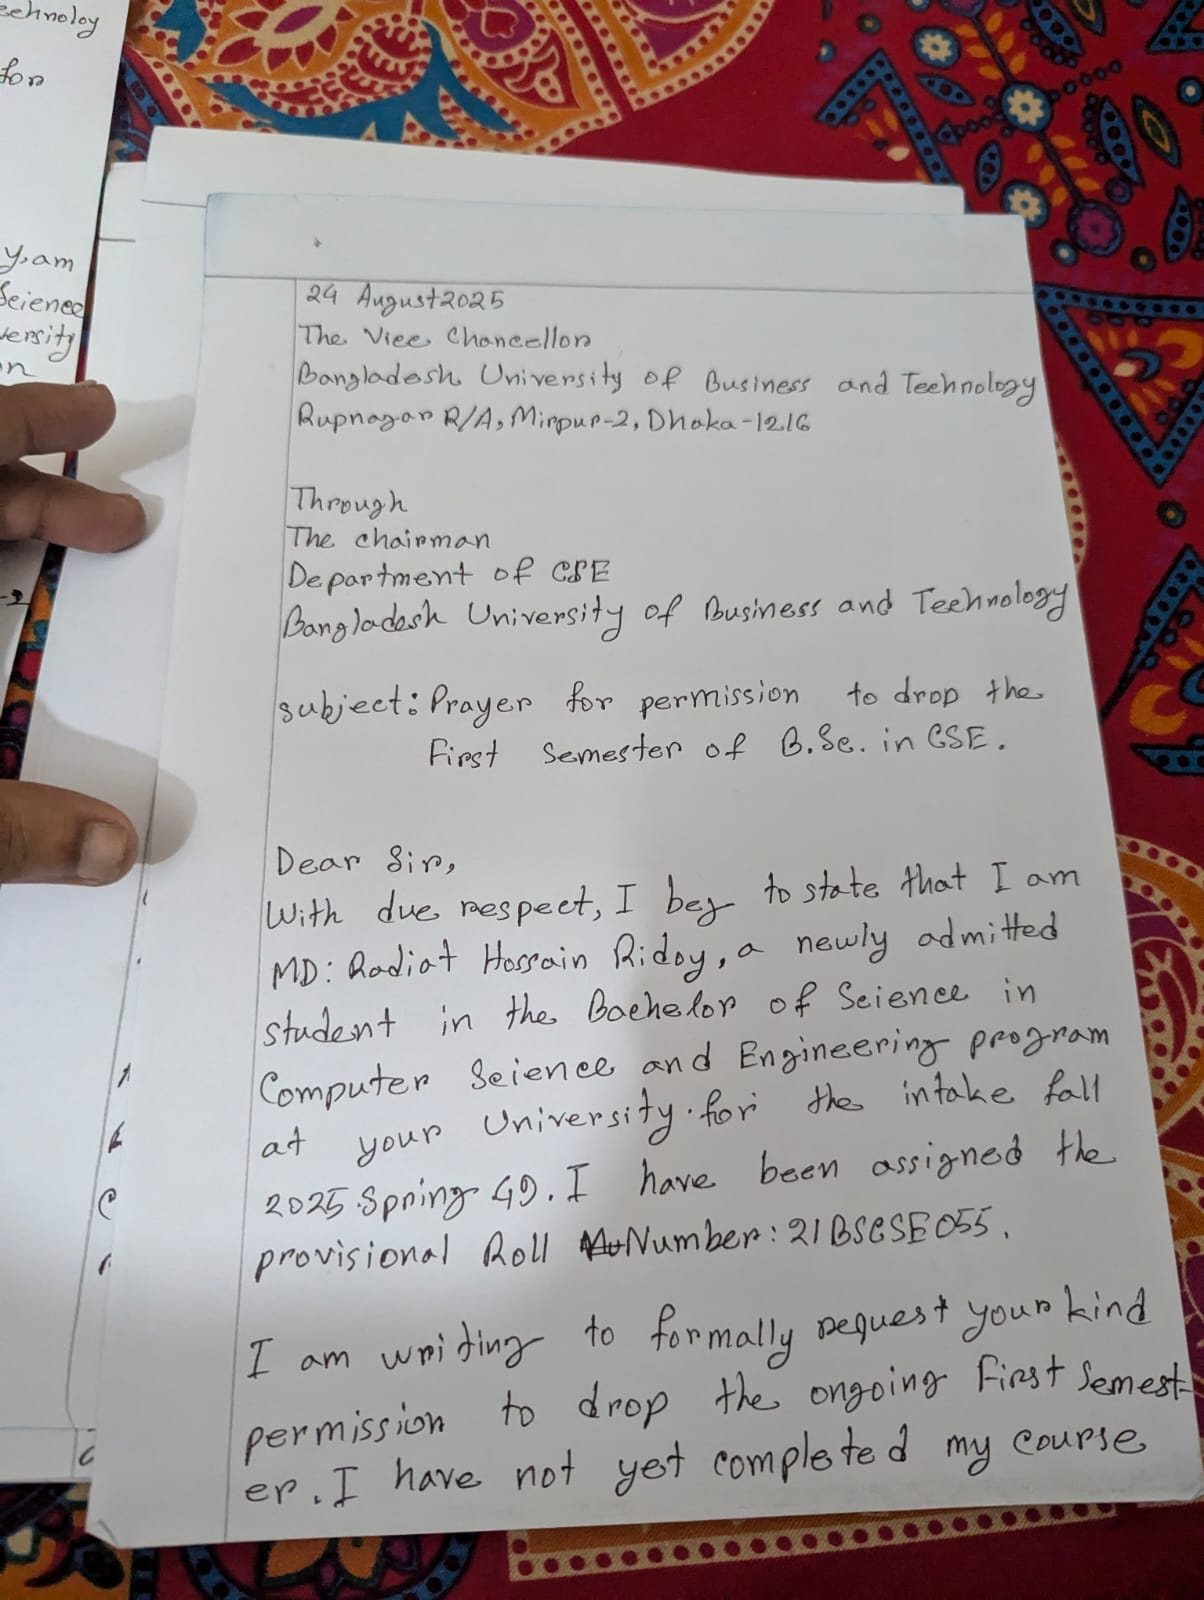 eehnoloy
for
y.am
Seience
versity
on
24 August 2025
The Vice Chancellor
Bangladesh University of Business and Technology
Rupnagar R/A, Mirpur-2, Dhaka-1216
Through
The chairman
Department of CSE
Bangladesh University of Business and Technology
subject: Prayer for permission to drop the
First Semester of B.Sc. in CSE.
Dear Sir,
With due respect, I beg to state that I am
MD: Radiat Hossain Ridoy, a newly admitted
student in the Bachelor of Science in
Computer Science and Engineering program
at your University. for the intake fall
2025 Spring 49. I have been assigned the
provisional Roll Number: 21BSCSE055.
I am writing to formally request your kind
permission to drop the ongoing First Semest-
er. I have not yet completed my course